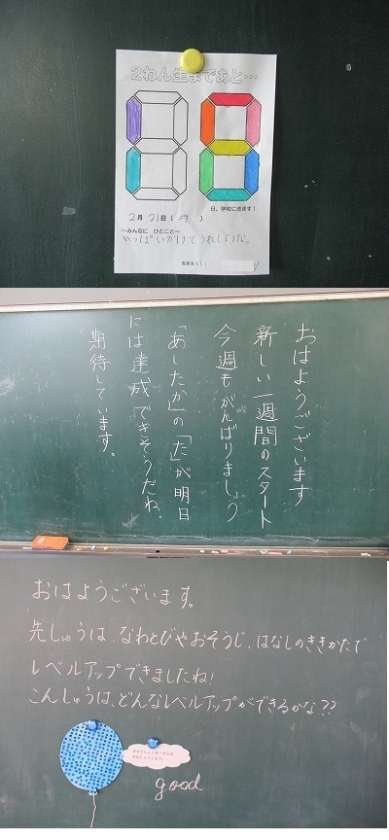 2ねん生まであと…
18
日、学校にきます!
2月21日( )
~みんなに ひとこと~
おはようございます
新しい一週間のスタート
今週もがんばりましょう
「あしたか」の「た」が明日
には達成できそうだね。
期待しています。
おはようございます。
先しゅうは、なわとびやおそうじ、はなしのききかたで
レベルアップできましたね!
こんしゅうは、どんなレベルアップができるかな??
good